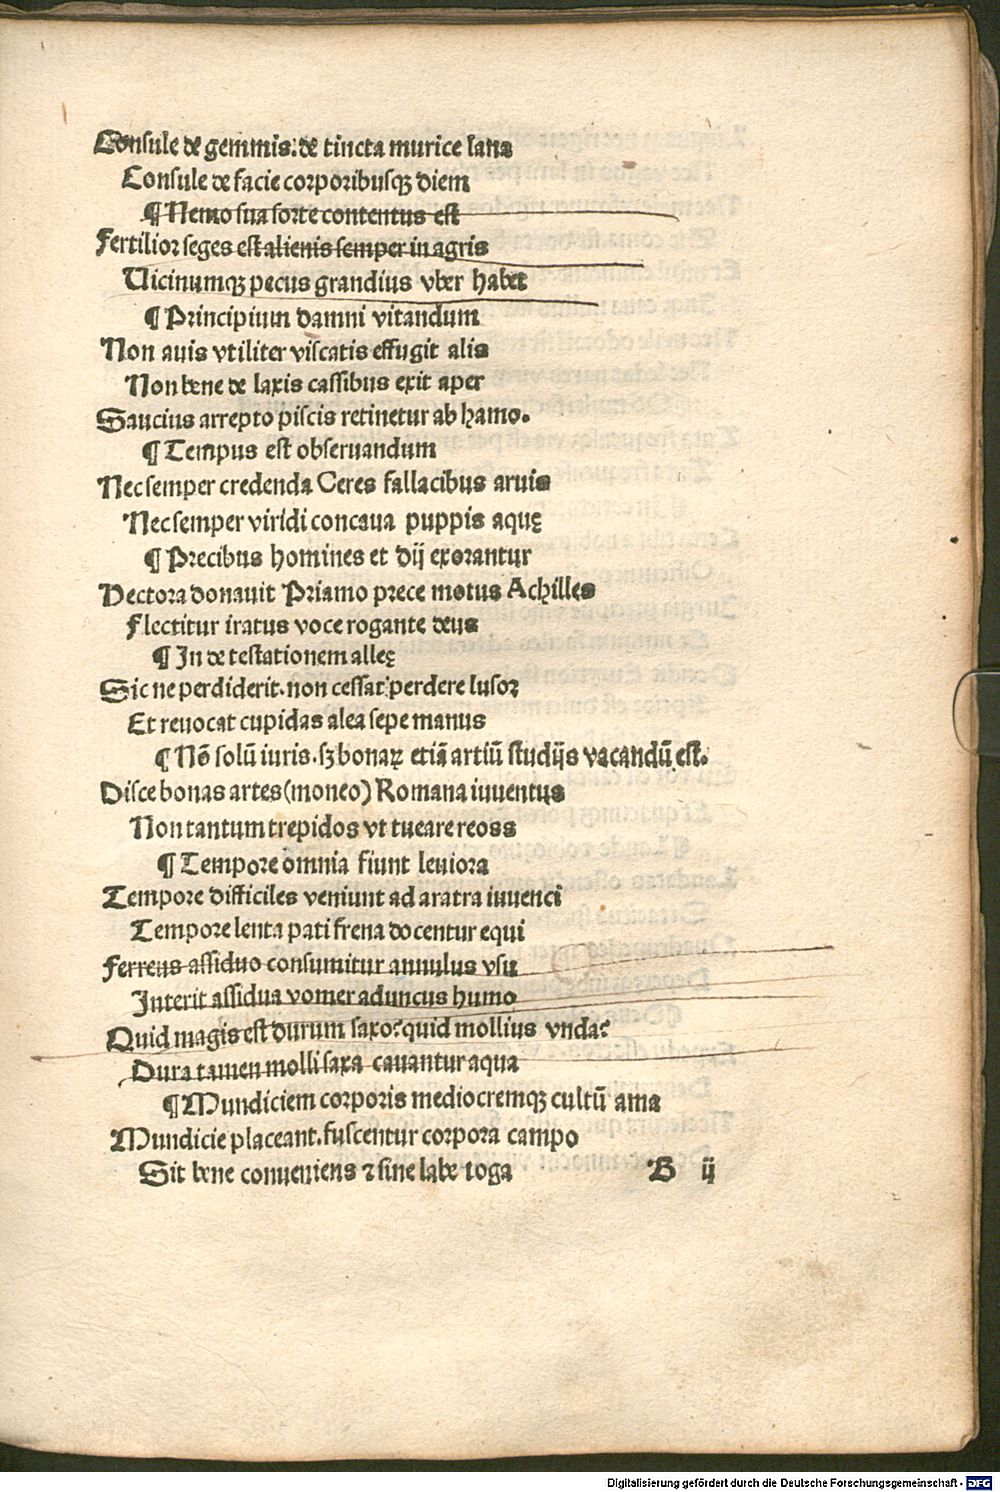 Consule de gemmis: de tincta murice lana
Consule de facie corporibusqꝫ diem
¶ Nemo sua sorte contentus est
Fertilior seges est alienis semper in agris
Uicinumqꝫ pecus grandius vber habet
¶ Principium damni vitandum
Non auis vtiliter viscatis effugit alis
Non bene de laxis cassibus exit aper
Saucius arrepto piscis retinetur ab hamo.
¶ Tempus est obseruandum
Nec semper credenda Ceres fallacibus aruis
Nec semper viridi concaua puppis aquę
¶ Precibus homines et dij exorantur
Hectora donauit Priamo prece motus Achilles
Flectitur iratus voce rogante deus
¶ In de testationem alleę
Sic ne perdiderit. non cessat perdere lusor
Et reuocat cupidas alea sepe manus
¶ Nō solū iuris. sꝫ bonaꝝ etiā artiū studijs vacandū est.
Disce bonas artes (moneo) Romana iuuentus
Non tantum trepidos vt tueare reoss
¶ Tempore omnia fiunt leuiora
Tempore difficiles veniunt ad aratra iuuenci
Tempore lenta pati frena docentur equi
Ferreus assiduo consumitur annulus vsu
Interit assidua vomer aduncus humo
Quid magis est durum saxo? quid mollius vnda?
Dura tamen molli saxa cauantur aqua
¶ Mundiciem corporis mediocremqꝫ cultū ama
Mundicie placeant. fuscentur corpora campo
Sit bene conueniens ⁊ sine labe toga
B ij
Digitalisierung gefördert durch die Deutsche Forschungsgemeinschaft - DFG